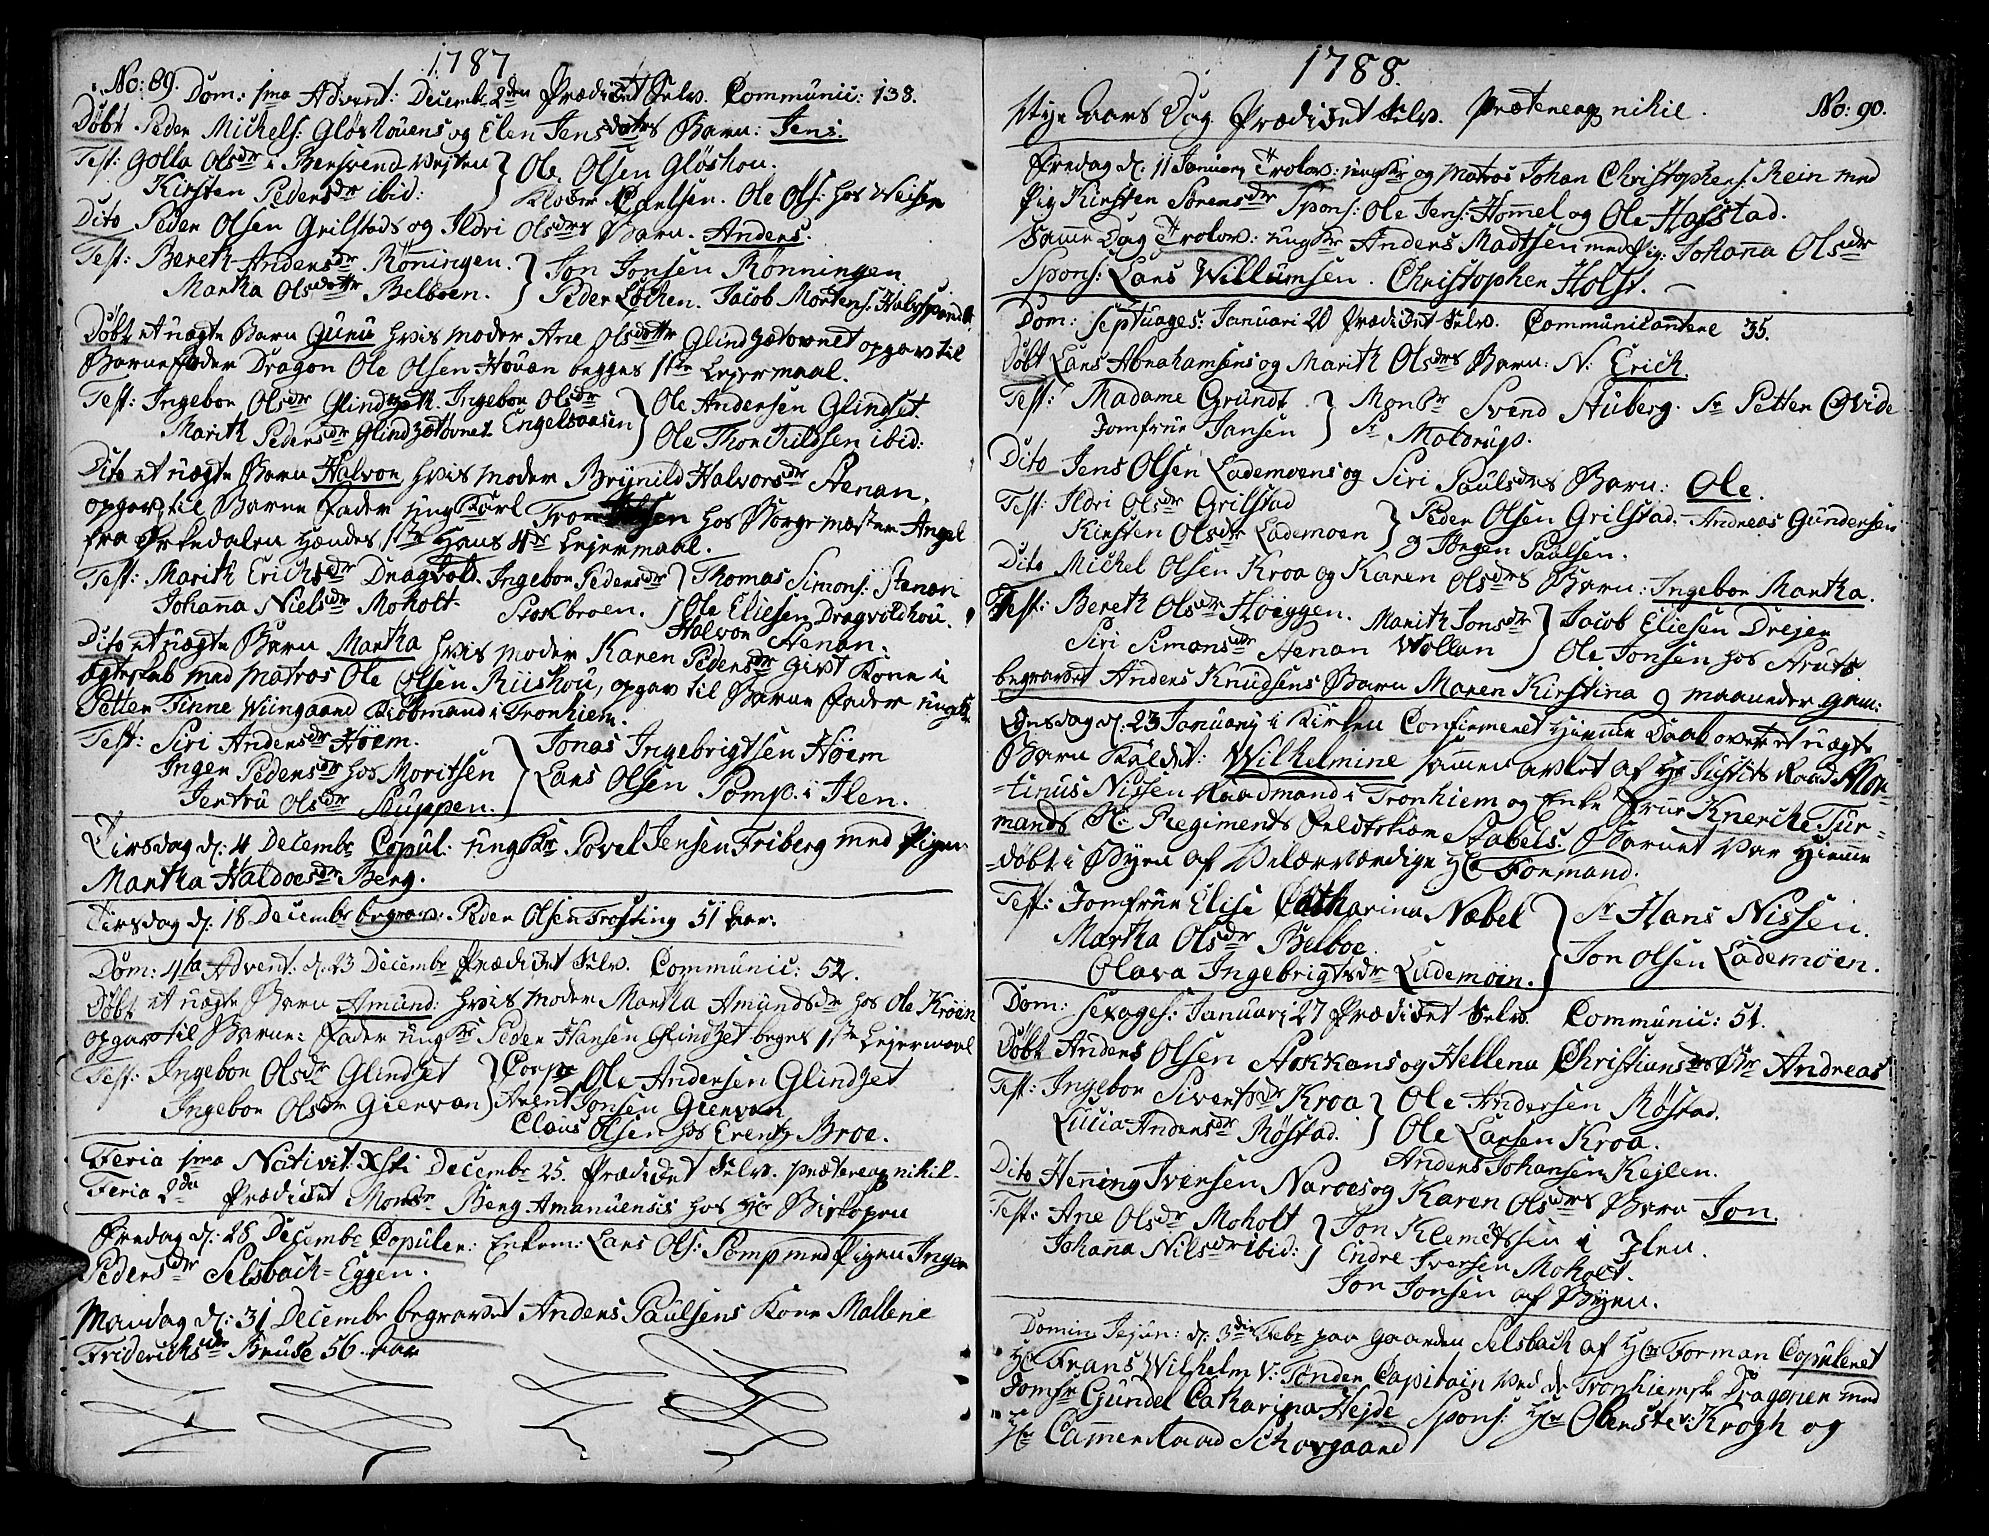 1787
No: 89. Dom: 1ma Advent: Decembr 2den Prædicket Selv. Communic: 138.
Døbt Peder Michels: Gløshouens og Elen Jensdatrs Barn: Jens.
Test: Golla Olsdr i Bersvend Vejten } Ole Olsen Gløshou.
Kirsten Pedersdr ibid: Carlsen. Ole Ols: hos Weisen
Dito Peder Olsen Grilstads og Ildri Olsdrs Barn. Anders.
Test: Bereth Andersdr Röningen. } Jon Jonsen Rønningen
Martha Olsdattr Belboen. Peder Løchen. Jacob Mortens: Halvspandt.
Døbt et uægte Barn Guru hvis moder Ane Olsdattr Glindzetovnet opgav til
Barnefader Dragon Ole Olsen Houan begges 1ste Lejermaal.
Test: Ingebor Olsdr Glindzeth. Ingebor Olsdr } Ole Andersen Glindset
Marith Pedersdr Glindzetovnet Engelsaasen Ole Thorchildsen ibid:
Dito et uægte Barn Halvor hvis moder Brynild Halvorsdr Stenan.
opgav til Barne fader ungkarl Tron hos Borgemæster Angel
fra Ørkedalen hendes 1ste Hans 4de Lejermaal.
Test: Marith Ericksdr Dragvold. Ingebor Pedersdr } Thomas Simons: Stenan
Johaña Nielsdr Moholt. Stokbroen. Ole Eliesen Dragvoldhou.
Halvor Stenan.
Dito et uægte Barn Martha hvis moder Karen Pedersdr givt Kone i
ægteskab med matros Ole Olsen Riishou, opgav til Barne fader ungkr
Petter Finne Wiingaard Kiøbmand i Tronhiem.
Test: Siri Andersdr Høem. } Jonas Ingebrigtsen Høem
Inger Pedersdr hos Moritsen Lars Olsen Pomp. i Ilen.
Jertru Olsdr Stuppen.
Tirsdag d. 4 Decembr Copul: ungkr Povel Jensen Friberg med Pigen
Martha Haldoesdr Berg.
Tirsdag d. 18 Decembr begrav: Peder Olsen Trosting 51 aar.
Dom: 4ta Advent: d. 23 Decembr Prædicket Selv. Communic: 52.
Døbt et uægte Barn Amund: hvis moder Martha Amundsdr hos Ole Krøen
opgav til Barne: fader ungkr Peder Hansen Glindset beges 1ste Lejermaal
Test: Ingebor Olsdr Glindset } Corpr Ole Andersen Glindzet
Ingebor Olsdr Giervan Arent Jonsen Giervan
Claus Olsen hos Erentz Broe.
Feria 1ma Nativit: Xsti Decembr 25. Prædicket Selv. prætereaq nihil.
Feria 2da Prædicket Monsr Berg Amanuensis hos Hr Biskopen
Fredag d. 28 Decembr Copuler: Enkem: Lars Ols: Pomp med Pigen Inger
Pedersdr Selsbach-Eggen.
Mandag d. 31 Decembr begravet Anders Paulsens Kone Mallene
Fridericksdr Bruse 56 aar

1788.
Nye Aars Dag Prædicket Selv. prætereaq nihil. No: 90.
Fredag d. 11 Januarj Trolov: ungkr og matros Johan Christophers: Rein med
Pig Kirsten Sørensdr Spons: Ole Jens: Hommel og Ole Hofstad.
Samme Dag Trolov: ungkr Anders Madtsen med Pig: Johaña Olsdr
Spons: Lars Willumsen. Christopher Holst.
Dom: Septuages: Januari 20 Prædicket Selv. Communicantere 35.
Døbt Lars Abrahamsens og Marith Olsdrs Barn: N: Erick.
Test: Madame Grundt } Monsr Svend Auberg. Sr Petter Qvide
Jomfrue Jansen Sr Moldrups.
Dito Jens Olsen Lademoens og Siri Paulsdrs Barn: Ole.
Test: Ildri Olsdr Grilstad } Peder Olsen Grilstad. Andreas Gundersen
Kirsten Olsdr Lademoen og Jørgen Paulsen.
Dito Michel Olsen Kroa og Karen Olsdrs Barn: Ingebor Martha.
Test: Bereth Olsdr Høiggen. Marith Jonsdr } Jacob Eliesen Drejer
Siri Simonsdr Stenan Wollan Ole Jonsen hos Struts.
begravet Anders Knudsens Barn Maren Kirstina 9 maaneder gam:
Onsdag d. 23 Januarj i Kirken Confirmeret Hiemme Daab over et uægte
Barn Kaldet: Wilhelmine sammenavlet af Hr Justits Raad Mor-
-tinus Nissen Raadmand i Tronhiem og Enke Frue Knerche Tur-
mands Regiments Feldtskiær Stabels. Barnet var Hiemme
-døbt i Byen af Velærværdige Hr Formand.
Test: Jomfrue Elise Catharina Næbel } Sr Hans Nissen.
Martha Olsdr Belboe. Jon Olsen Lademøen.
Olava Ingebrigtsdr Lademøen.
Dom: Sexages: Januarj 27 Prædicket Selv. Communic: 51.
Døbt Anders Olsen Stokkans og Hellena Christiansdrs Br Andreas
Test: Ingebor Sivertsdr Kroa } Ole Andersen Røstad.
Lucia Andersdr Røstad. Ole Larsen Kroa.
Anders Johansen Kejlen.
Dito Hening Iversen Naroes og Karen Olsdrs Barn Jon.
Test: Ane Olsdr Moholt } Jon Klemetsen i Ilen.
Johaña Nilsdr ibid: Endre Iversen Moholt.
Jon Jonsen af Byen.
Domin: Jejun: d. 3die Febr paa gaarden Selsbach af Hr Forman Copuleret
Hr Frans Wilhelm v: Tønder Capitain ved de Tronhiemske Dragoner med
Jomfr Gundel Catharina Hejde Spons: Hr Oberste v: Krogh og
Hr Camer Raad Schavgaard